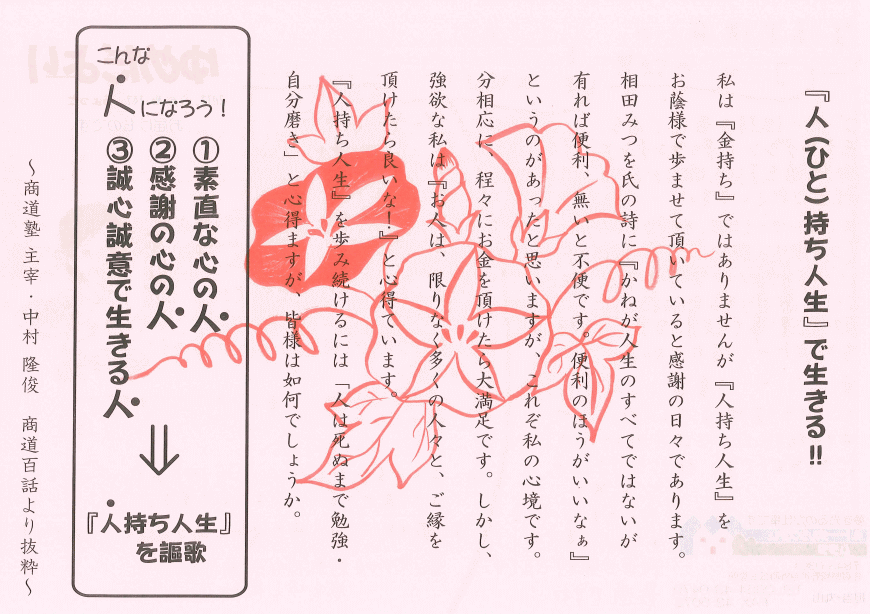 『人(ひと)持ち人生』で生きる!!
私は『金持ち』ではありませんが『人持ち人生』を
お蔭様で歩ませて頂いていると感謝の日々であります。
相田みつを氏の詩に『かねが人生のすべてではないが
有れば便利、無いと不便です。便利のほうがいいなぁ』
というのがあったと思いますが、これぞ私の心境です。
分相応に、程々にお金を頂けたら大満足です。しかし、
強欲な私は『お人は、限りなく多くの人々と、ご縁を
頂けたら良いな!』と心得ています。
『人持ち人生』を歩み続けるには「人は死ぬまで勉強・
自分磨き」と心得ますが、皆様は如何でしょうか。
こんな
人になろう!
①素直な心の人
②感謝の心の人
③誠心誠意で生きる人
⇒
『人持ち人生』
を謳歌
～商道塾 主宰・中村 隆俊 商道百話より抜粋～